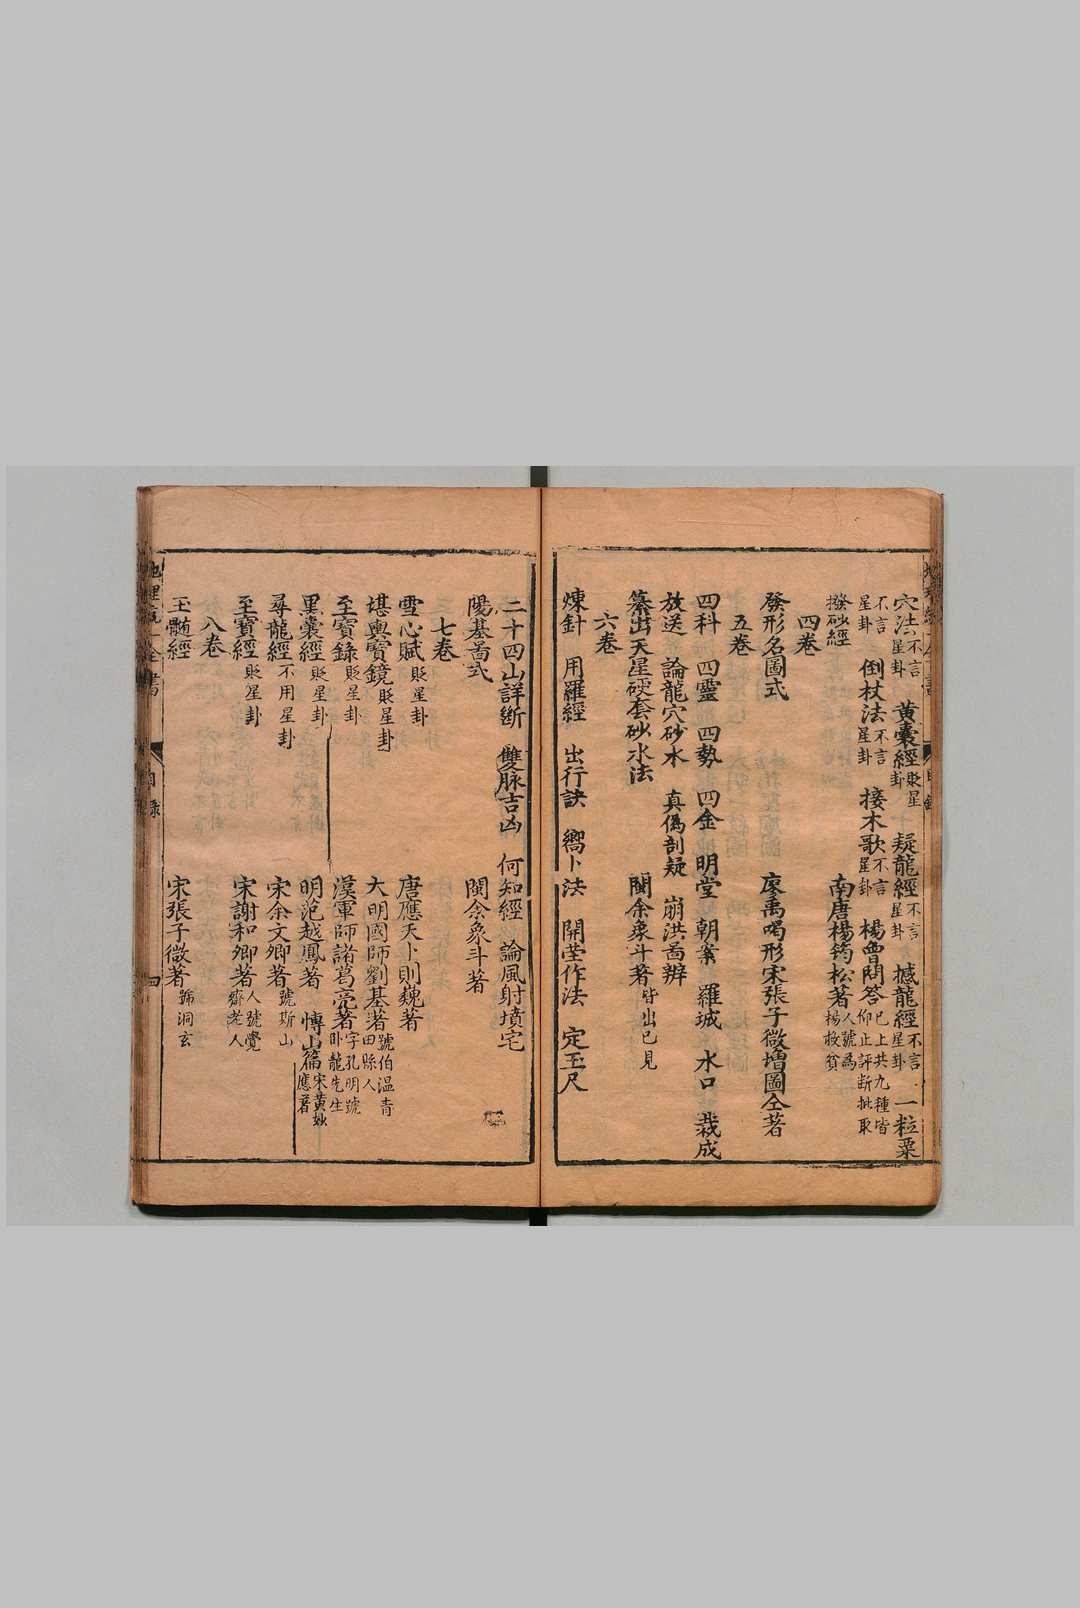 穴法不言星卦 黄囊經貶星卦 疑龍經不言星卦 撼龍經不言星卦 一粒粟
不言星卦 倒杖法不言星卦 接木歌不言星卦 楊曾問答已上共九種皆仰止評斷批取
撥砂經 南唐楊筠松著人號爲楊救貧
四卷
發形名圖式 廖禹喝形宋張子微增圖仝著
五卷
四科 四靈 四勢 四金 明堂 朝案 羅城 水口 栽成
放送 論龍穴砂水 真僞剖疑 崩洪啚辨
纂出天星硬套砂水法 閩余象斗著皆出己見
六卷
煉針 用羅經 出行訣 嚮卜法 開塋作法 定玉尺
二十四山詳斷 雙脉吉凶 何知經 論風射墳宅
陽基啚式 閩余象斗著
七卷
雪心賦貶星卦 唐應天卜則巍著
堪輿寶鏡貶星卦 大明國師劉基著號伯温青田縣人
至寶錄貶星卦 漢軍師諸葛亮著字孔明號臥龍先生
黑囊經貶星卦 明范越鳳著 慱山篇宋黄妙應著
尋龍經不用星卦 宋余文卿著號斯山
至寶經貶星卦 宋謝和卿著人號覺齋老人
八卷
玉髄經 宋張子微著號洞玄
地理統一全書
目録
四